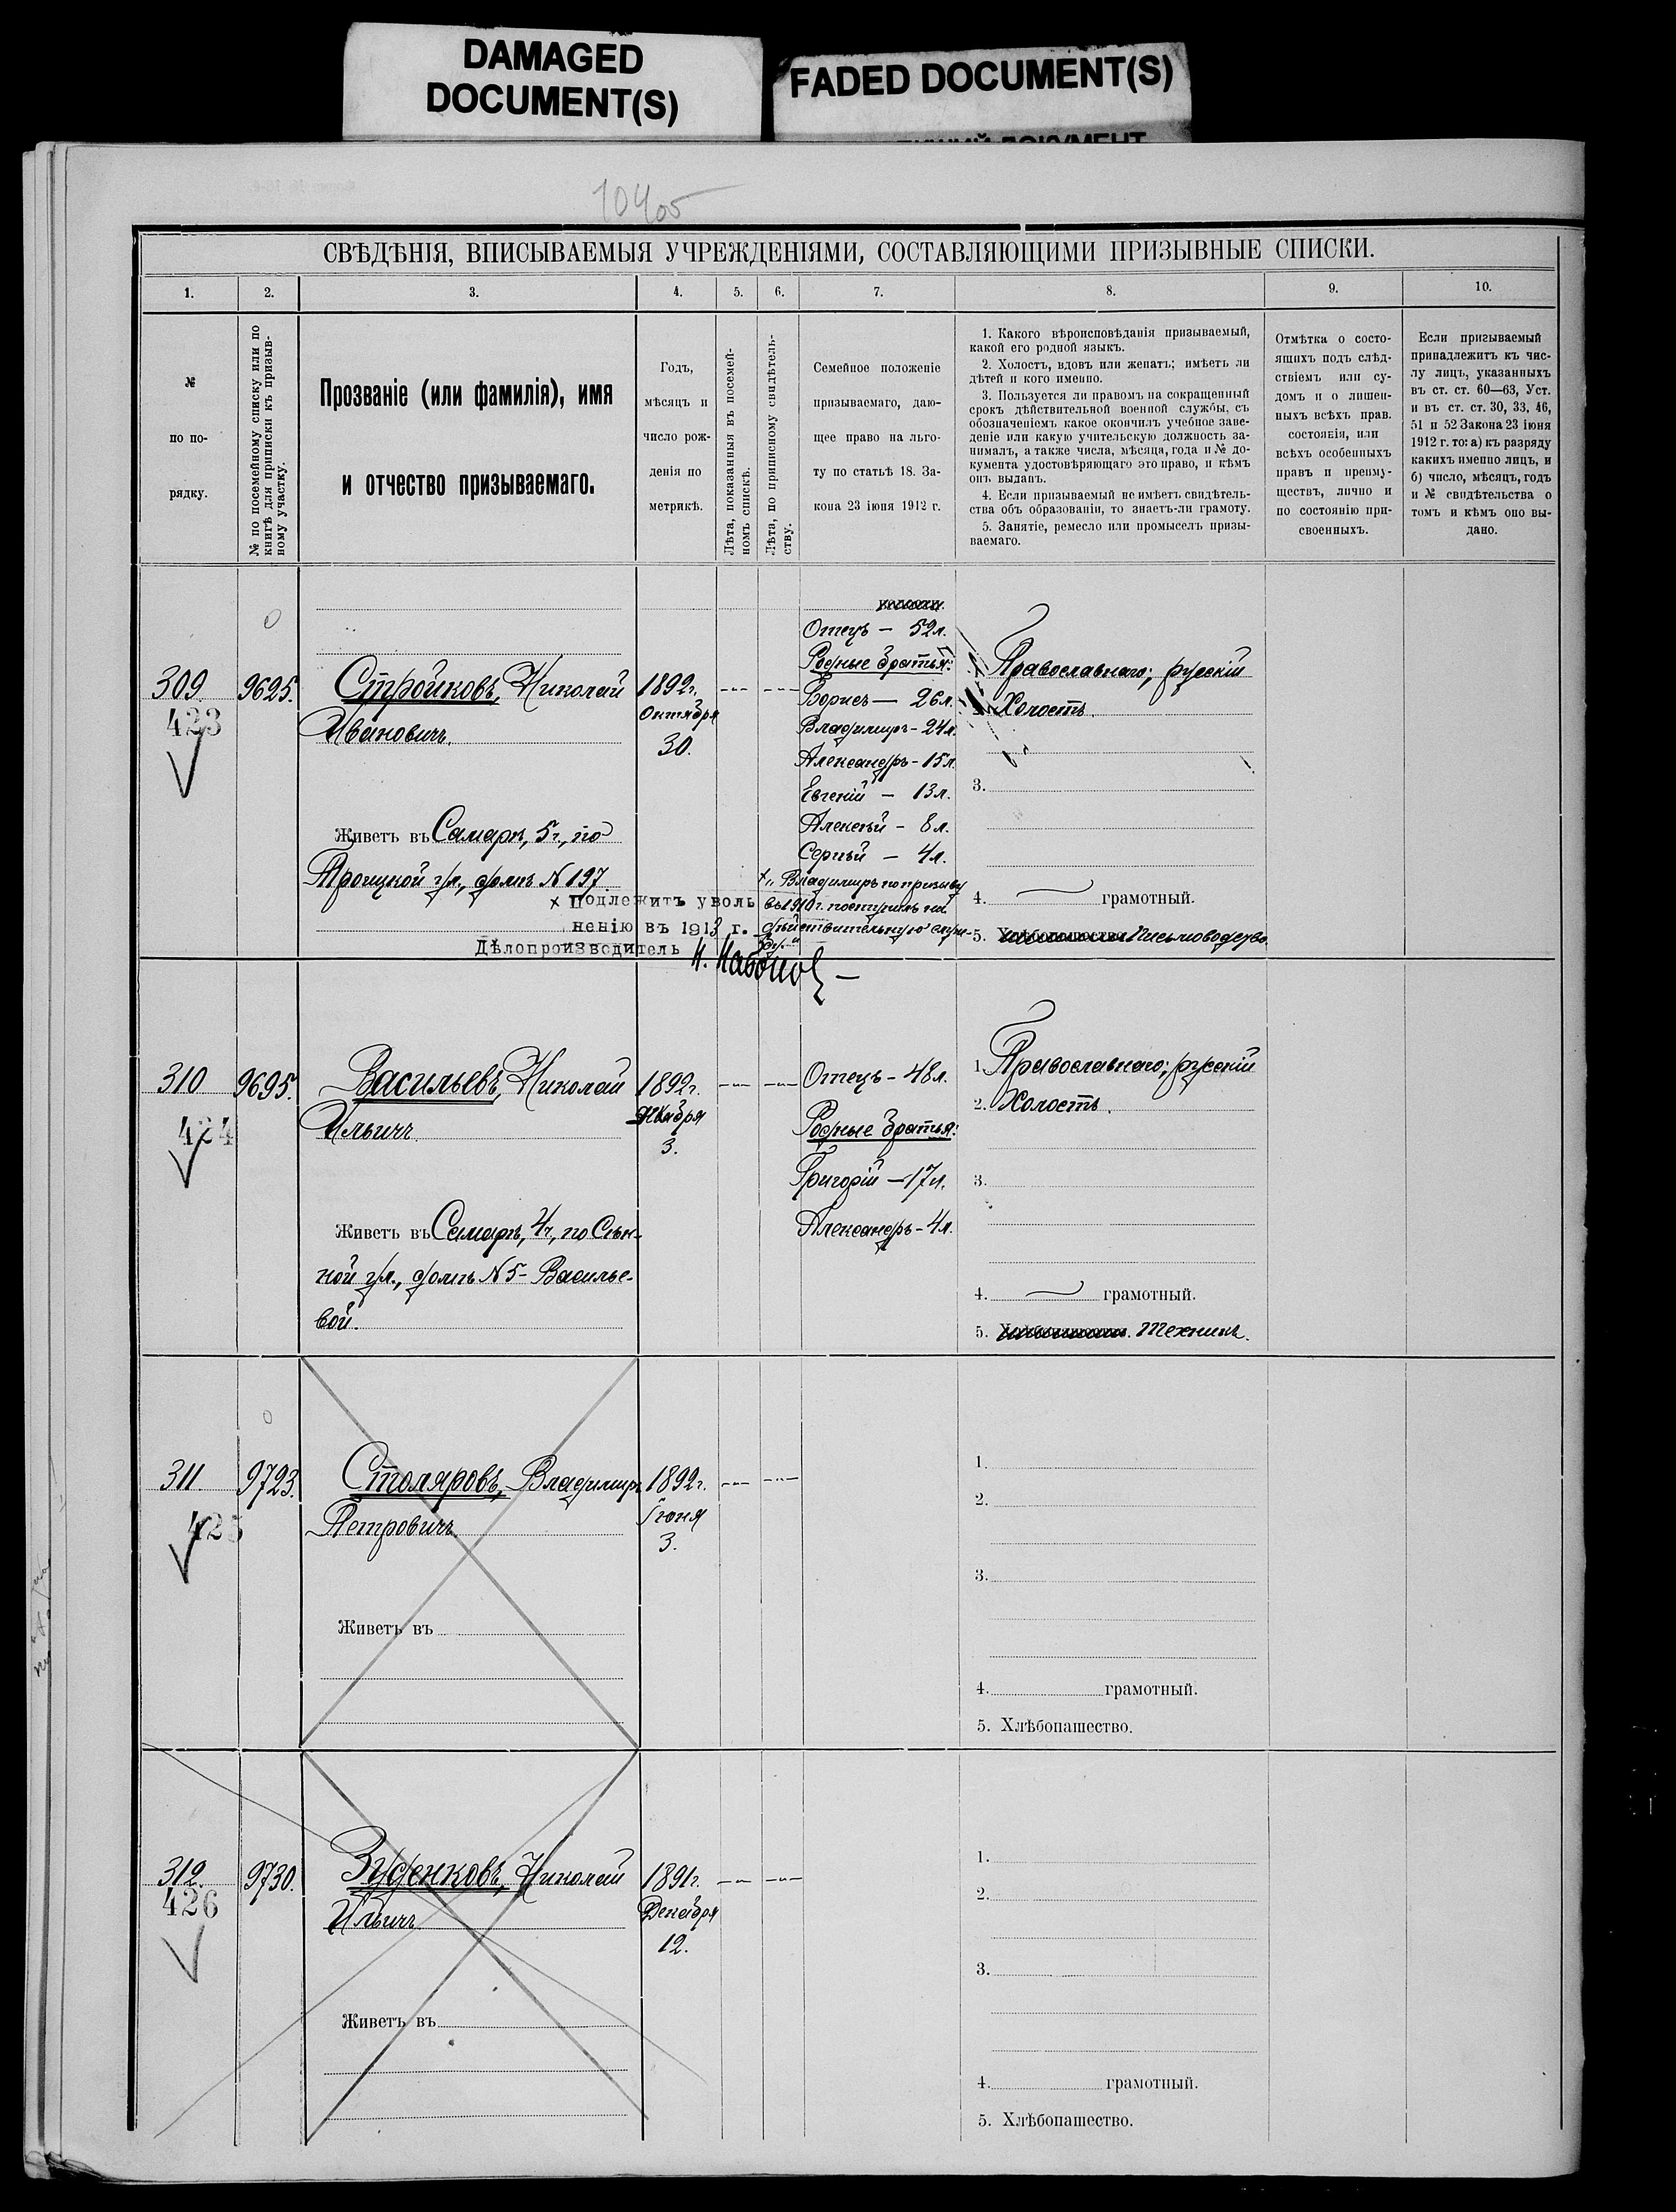 DAMAGED
DOCUMENT(S)
FADED DOCUMENT(S)
СВѢДѢНІЯ, ВПИСЫВАЕМЫЯ УЧРЕЖДЕНІЯМИ, СОСТАВЛЯЮЩИМИ ПРИЗЫВНЫЕ СПИСКИ.
1. 2. 3. 4. 5. 6. 7. 8. 9. 10.
№
по по-
рядку.
№ по посемейному списку или по
книгѣ для приписки къ призыв-
ному участку.
Прозваніе (или фамилія), имя
и отчество призываемаго.
Годъ,
мѣсяцъ и
число рож-
денія по
метрикѣ.
Лѣта, показанныя въ посемей-
номъ спискѣ.
Лѣта, по приписному свидѣтель-
ству.
Семейное положеніе
призываемаго, даю-
щее право на льго-
ту по статьѣ 18. За-
кона 23 іюня 1912 г.
1. Какого вѣроисповѣданія призываемый,
какой его родной языкъ.
2. Холостъ, вдовъ или женатъ; имѣетъ ли
дѣтей и кого именно.
3. Пользуется ли правомъ на сокращенный
срокъ дѣйствительной военной службы, съ
обозначеніемъ какое окончилъ учебное заве-
деніе или какую учительскую должность за-
нималъ, а также числа, мѣсяца, года и № до-
кумента удостовѣряющаго это право, и кѣмъ
онъ выданъ.
4. Если призываемый не имѣетъ свидѣтель-
ства объ образованіи, то знаетъ-ли грамоту.
5. Занятіе, ремесло или промыселъ призы-
ваемаго.
Отмѣтка о состо-
ящихъ подъ слѣд-
ствіемъ или су-
домъ и о лишен-
ныхъ всѣхъ прав.
состоянія, или
всѣхъ особенныхъ
правъ и преиму-
ществъ, лично и
по состоянію при-
своенныхъ.
Если призываемый
принадлежитъ къ чис-
лу лицъ, указанныхъ
въ ст. ст. 60—63, Уст.
и въ ст. ст. 30, 33, 46,
51 и 52 Закона 23 іюня
1912 г. то: а) къ разряду
какихъ именно лицъ, и
б) число, мѣсяцъ, годъ
и № свидѣтельства о
томъ и кѣмъ оно вы-
дано.
309
423
9625.
Стройковъ, Николай
Ивановичъ.
Живетъ въ Самарѣ, 5ч., по
Троицкой ул., домъ N 197.
1892г.
Октября
30.
Отецъ — 52л.
Родные братья:
Борисъ — 26л.
Владиміръ - 24л.
Александръ - 15л.
Евгеній — 13л.
Алексѣй - 8л.
Сергѣй — 4л.
х „Владиміръ по призыву
въ 1910г. поступилъ на
дѣйствительную служ-
бу."
х Подлежитъ уволь
ненію въ 1913 г.
Дѣлопроизводитель
Православнаго; русскій
Холостъ.
3.
4. грамотный.
5. Хлѣбопашество Письмоводство.
310
424
9695.
Васильевъ, Николай
Ильичъ.
Живетъ въ Самарѣ, 4ч., по Сѣн-
ной ул., домъ N 5 - Василье-
вой.
1892г.
Декабря
3.
Отецъ - 48л.
Родные братья:
Григорій — 17л.
Александръ - 4л.
1. Православнаго; русскій
2. Холостъ.
3.
4. грамотный.
5. Хлѣбопашество. Техникъ.
311.
425
9723.
Столяровъ, Владиміръ
Петровичъ
Живетъ въ
1892г.
Іюня
3.
1.
2.
3.
4. грамотный.
5. Хлѣбопашество.
312.
426
9730.
Зуденковъ, Николай
Ильичъ.
Живетъ въ
1891г.
Декабря
12.
1.
2.
3.
4. грамотный.
5. Хлѣбопашество.